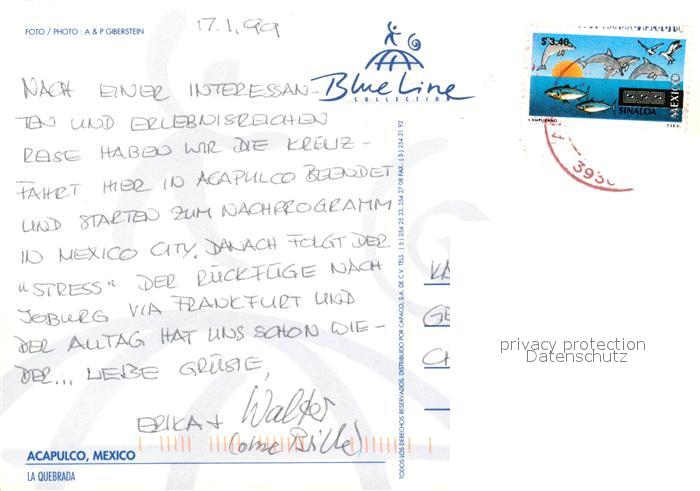 FOTO / PHOTO : A & P GIBERSTEIN
17.1.99
Blue Line
COLLECTION
NACH EINER INTERESSAN-
TEN UND ERLEBNISREICHEN
REISE HABEN WIR DIE KREUZ-
FAHRT HIER IN ACAPULCO BEENDET
UND STARTEN ZUM NACHPROGRAMM
IN MEXICO CITY. DANACH FOLGT DER
"STRESS" DER RÜCKFLÜGE NACH
JOBURG VIA FRANKFURT UND
DER ALLTAG HAT UNS SCHON WIE-
DER... LIEBE GRÜSSE,
ERIKA + Walter
(ohne Brille)
ACAPULCO, MEXICO
LA QUEBRADA
TODOS LOS DERECHOS RESERVADOS, DISTRIBUIDO POR CAPACO, S.A. DE C.V. TELS. (5) 254 25 33, 254 27 08 FAX.: (5) 254 21 92
$ 3.40
MEXICO
SINALOA
CAMPUZANO
T.I.E.V.
393
KA
GE
CH
privacy protection
Datenschutz